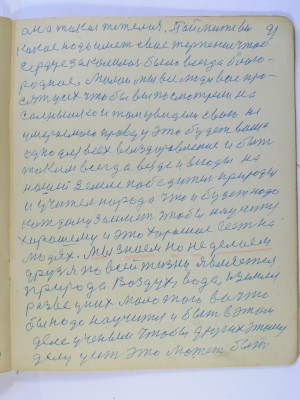 она такая тяжелая. Поймите вы 91
какое подымет свое терпение чтоб
сердце закалился было всегда благо-
родное. Милаи мы все люди все про-
сят усих чтобы вы посмотрели на
солнышко и там увидели свою не
умираемую правду это будет ваша
одно для всех выздоровление и быт
таким всегда везде и всюды на
нашей Земле победитель природы
и учител народа что и будет надо
каждому заимет чтобы научит
хорошему и это хорошае сеет на
людях. Мы знаем но не делаем
друзя по всей жизни является
природа Воздух, вода, и земля
разве у них мало того вы что
бы надо научится и быт в этом
деле ученым чтобы других этому
делу учит это может быт